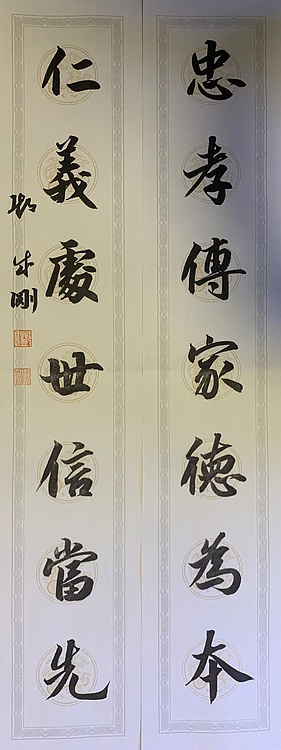 忠孝傳家德為本
仁義處世信當先